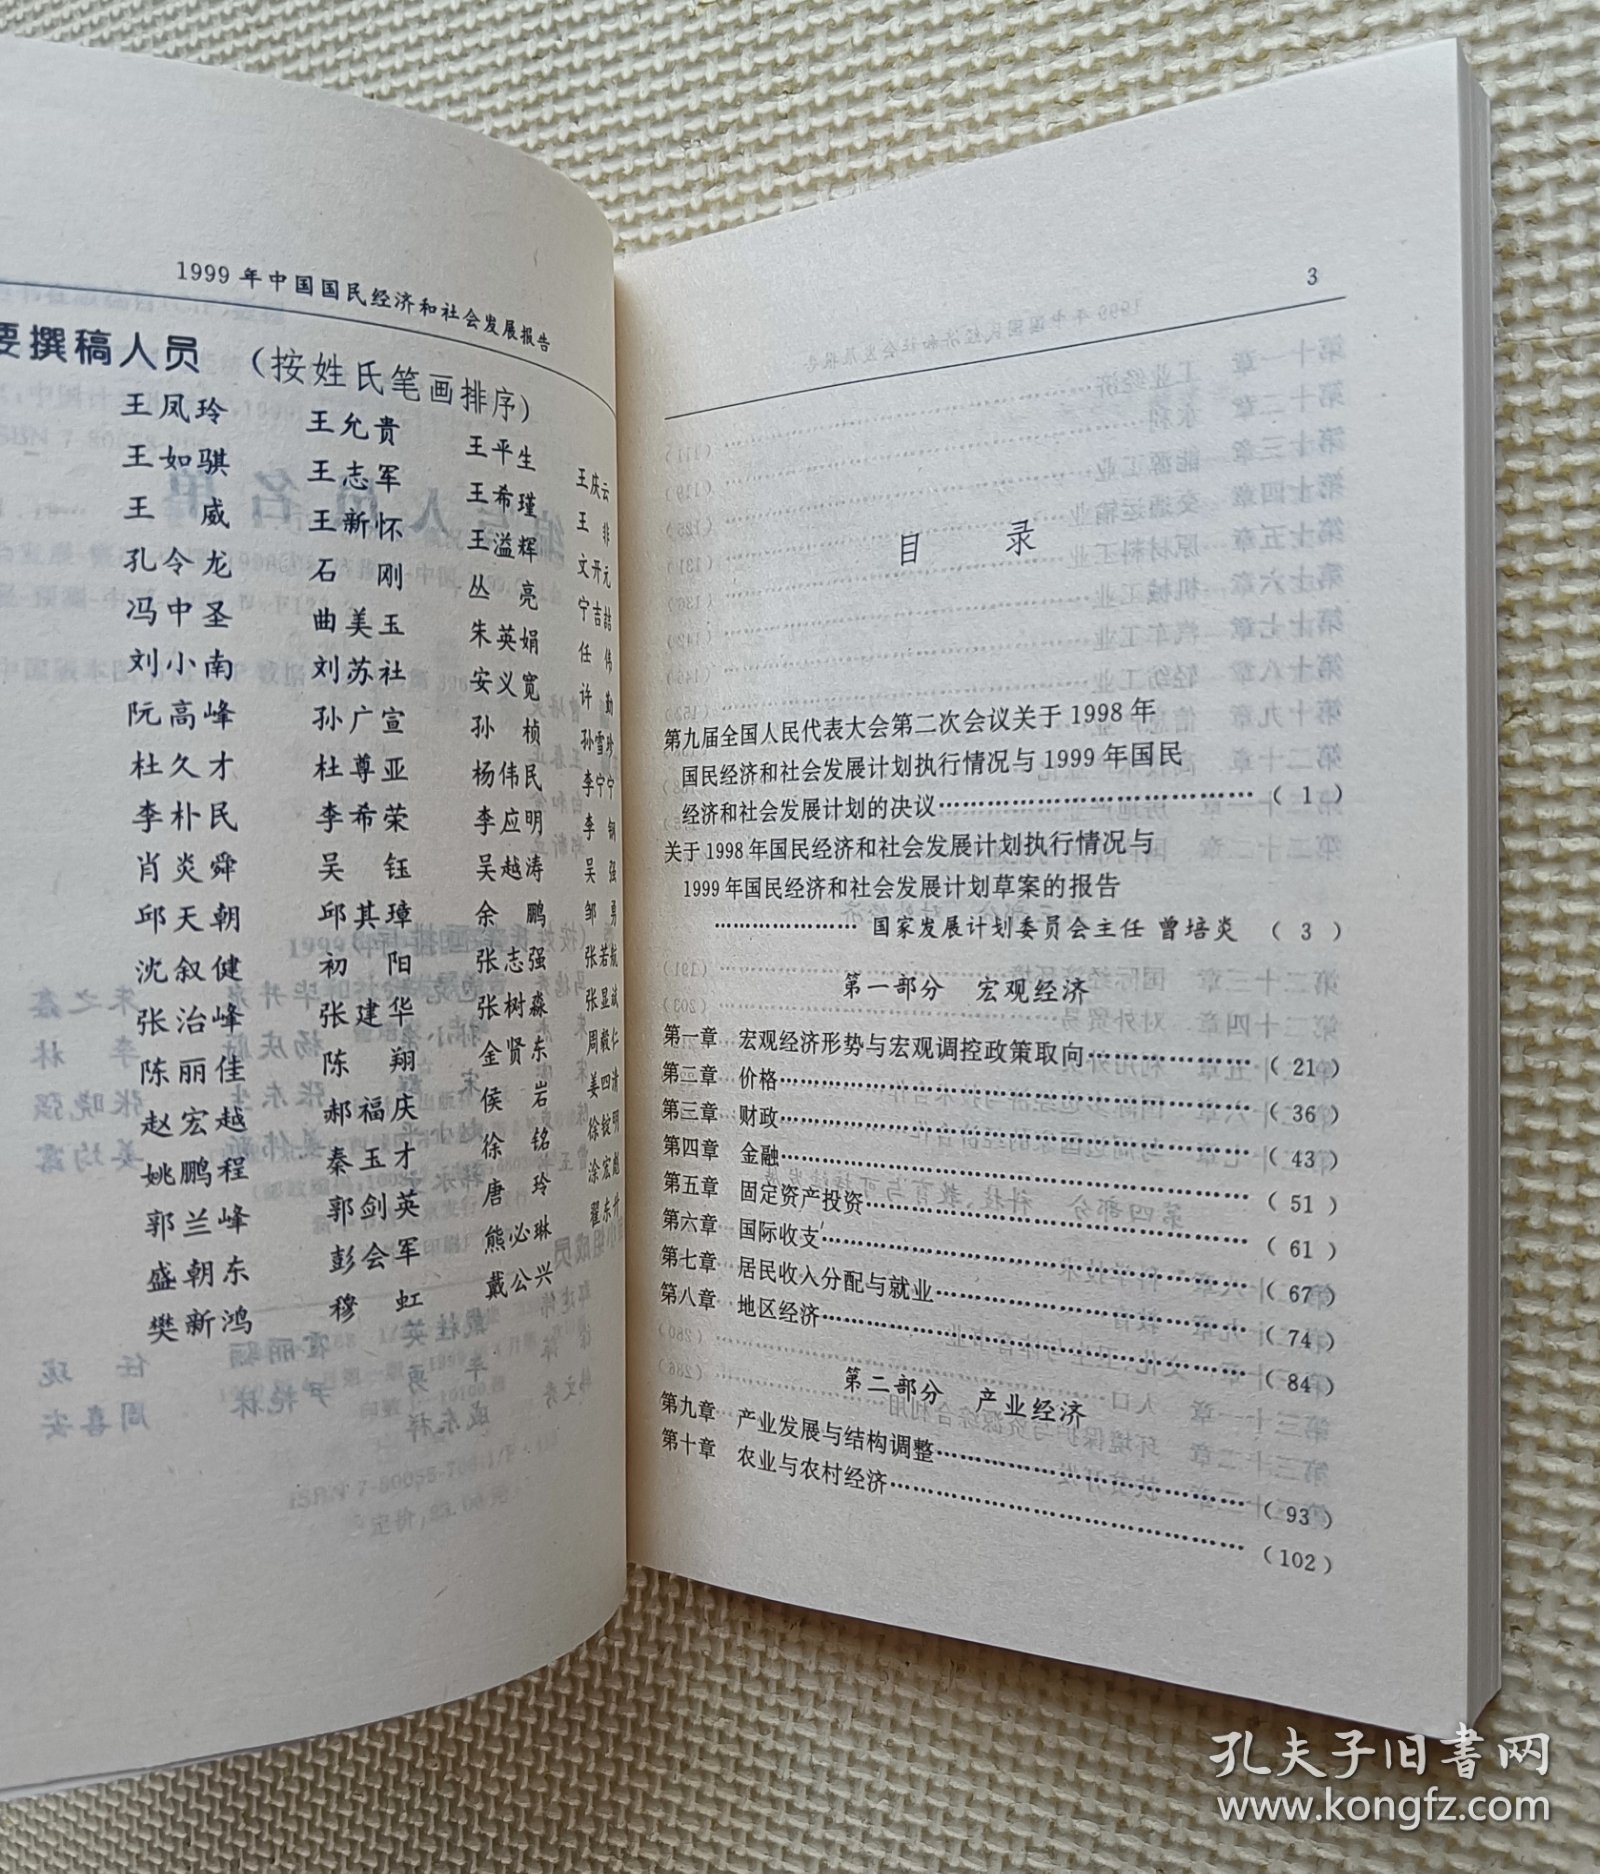 1999年中国国民经济和社会发展报告
要撰稿人员 (按姓氏笔画排序)
王凤玲 王允贵 王平生 王庆云
王如骐 王志军 王希瑾 王 非
王 威 王新怀 王溢辉 文开元
孔令龙 石 刚 丛 亮 宁吉喆
冯中圣 曲美玉 朱英娟 任 伟
刘小南 刘苏社 安义宽 许 勤
阮高峰 孙广宣 孙 桢 孙雪珍
杜久才 杜尊亚 杨伟民 李宁宁
李朴民 李希荣 李应明 李 钢
肖炎舜 吴 钰 吴越涛 吴 强
邱天朝 邱其璋 余 鹏 邹 勇
沈叙健 初 阳 张志强 张若航
张治峰 张建华 张树森 张显斌
陈丽佳 陈 翔 金贤东 周毅仁
赵宏越 郝福庆 侯 岩 姜四清
姚鹏程 秦玉才 徐 铭 徐锭明
郭兰峰 郭剑英 唐 玲 涂宏彪
盛朝东 彭会军 熊必琳 翟东升
樊新鸿 穆 虹 戴公兴
3
目 录
第九届全国人民代表大会第二次会议关于1998年
国民经济和社会发展计划执行情况与1999年国民
经济和社会发展计划的决议……………………………………( 1 )
关于1998年国民经济和社会发展计划执行情况与
1999年国民经济和社会发展计划草案的报告
…………………国家发展计划委员会主任 曾培炎 ( 3 )
第一部分 宏观经济
第一章 宏观经济形势与宏观调控政策取向…………………( 21 )
第二章 价格……………………………………………………( 36 )
第三章 财政……………………………………………………( 43 )
第四章 金融……………………………………………………( 51 )
第五章 固定资产投资…………………………………………( 61 )
第六章 国际收支………………………………………………( 67 )
第七章 居民收入分配与就业…………………………………( 74 )
第八章 地区经济………………………………………………( 84 )
第二部分 产业经济
第九章 产业发展与结构调整…………………………………( 93 )
第十章 农业与农村经济………………………………………(102)
孔夫子旧书网
www.kongfz.com